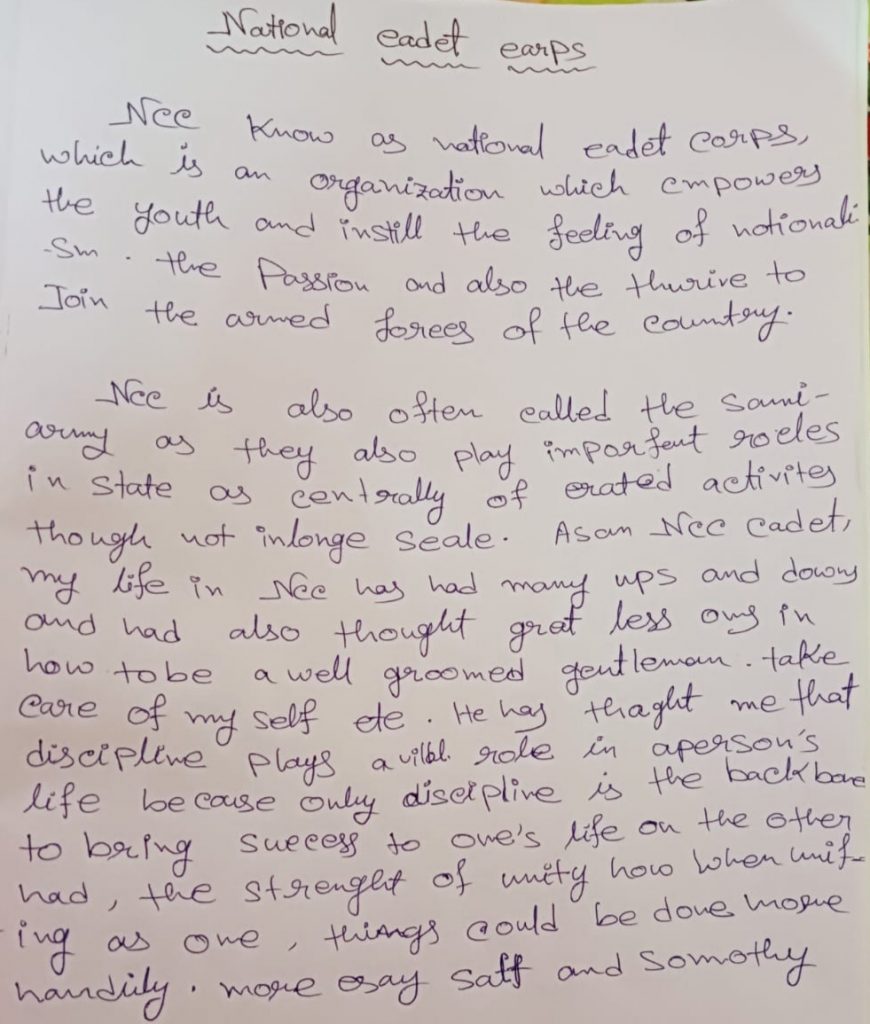 National cadet carps
Ncc Know as national cadet corps,
which is an organization which empowers
the youth and instill the feeling of notionali
-sm . the Passion and also the thurive to
Join the armed forces of the country.
Ncc is also often called the sami-
army as they also play imporfent roeles
in state as centrally of erated activites
though not inlonge scale. Asan Ncc cadet,
my life in Ncc has had many ups and downs
and had also thought grat less ons in
how tobe a well groomed gentleman. take
care of my self etc. He has thaght me that
discipline plays a role in aperson's
life because only discipline is the backbone
to bring success to one's life on the other
had, the strenght of unity how when unif-
ing as one, things could be done more
handily. more esay saff and somothy